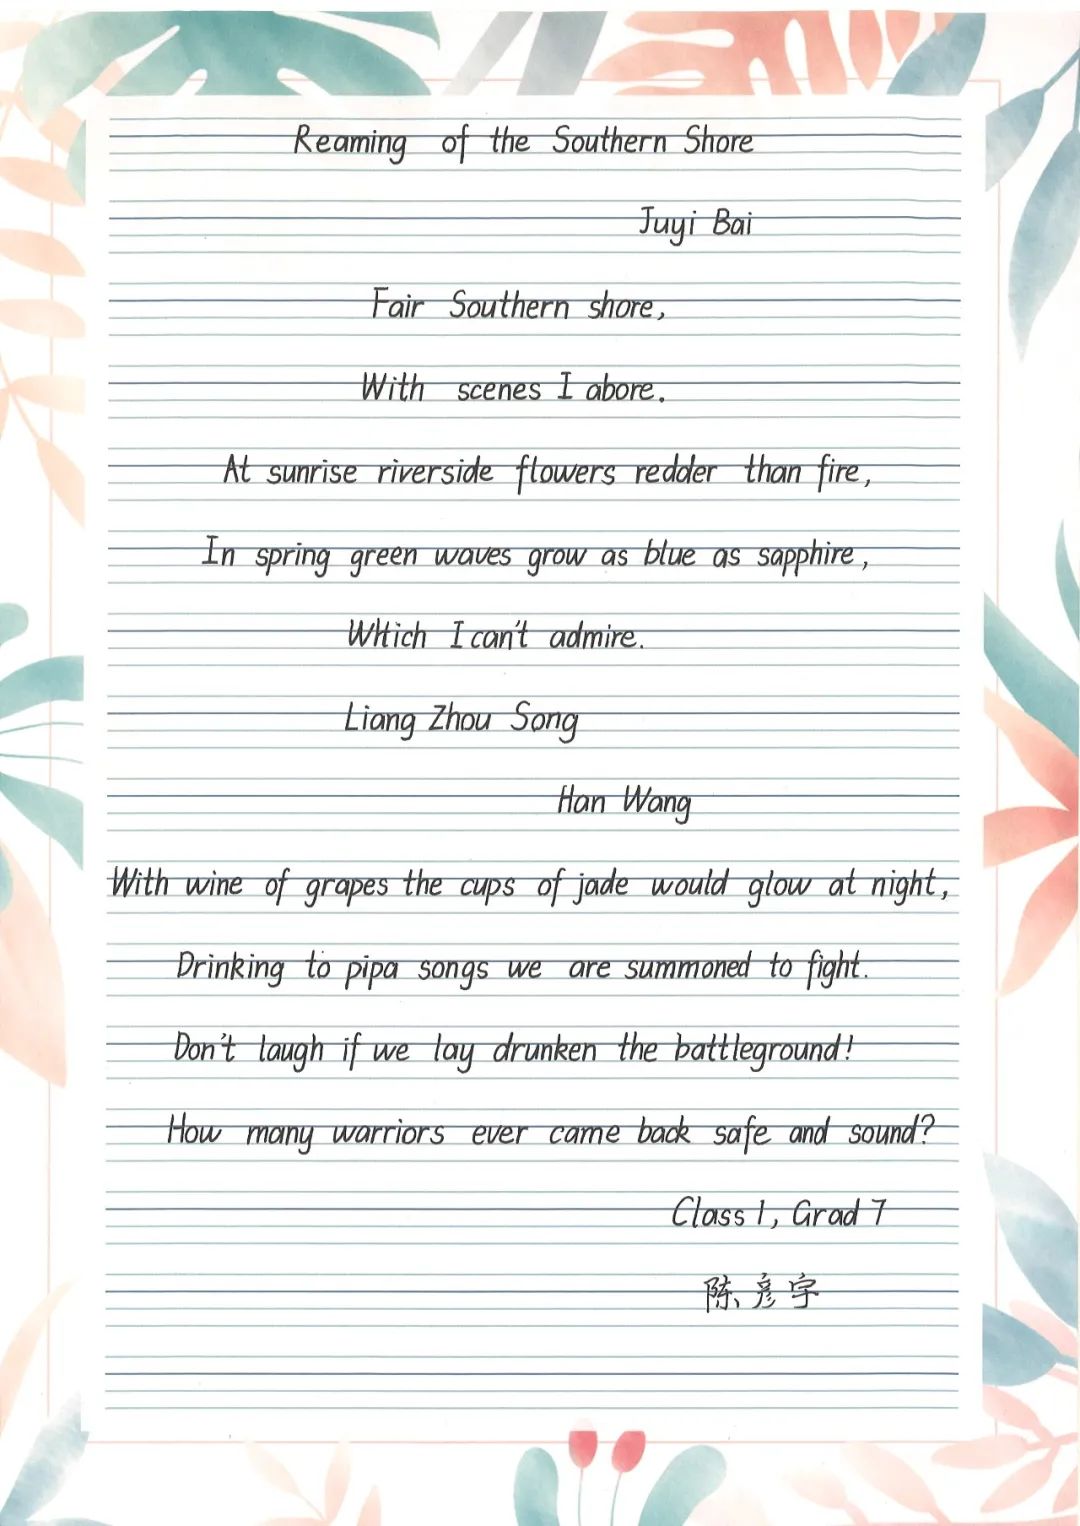 Reaming of the Southern Shore
Juyi Bai
Fair Southern shore,
With scenes I abore.
At sunrise riverside flowers redder than fire,
In spring green waves grow as blue as sapphire,
WHich I can't admire.
Liang Zhou Song
Han Wang
With wine of grapes the cups of jade would glow at night,
Drinking to pipa songs we are summoned to fight.
Don't laugh if we lay drunken the battleground!
How many warriors ever came back safe and sound?
Class 1, Grad 7
陈彦宇